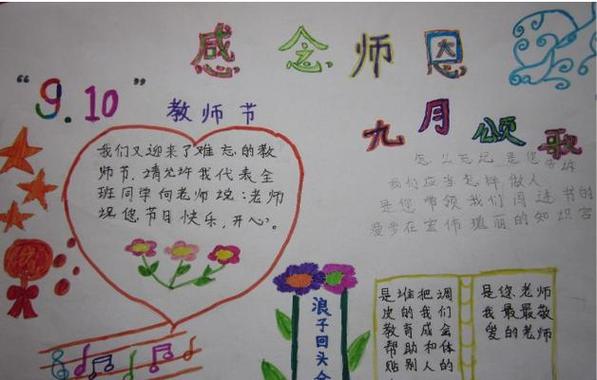 感念师恩
“9.10”
教师节
九月颂歌
我们又迎来了难忘的教
师节,请允许我代表全
班同学向老师说:老师
祝您节日快乐,开心。
怎么忘记是您
我们应当怎样做人
是您带领我们闯进书的
爱步在宏伟瑰丽的知识宫
浪子回头
是谁把调
皮的我们
教育成会
帮助和体
贴别人的
是您老师
我最最敬
爱的老师